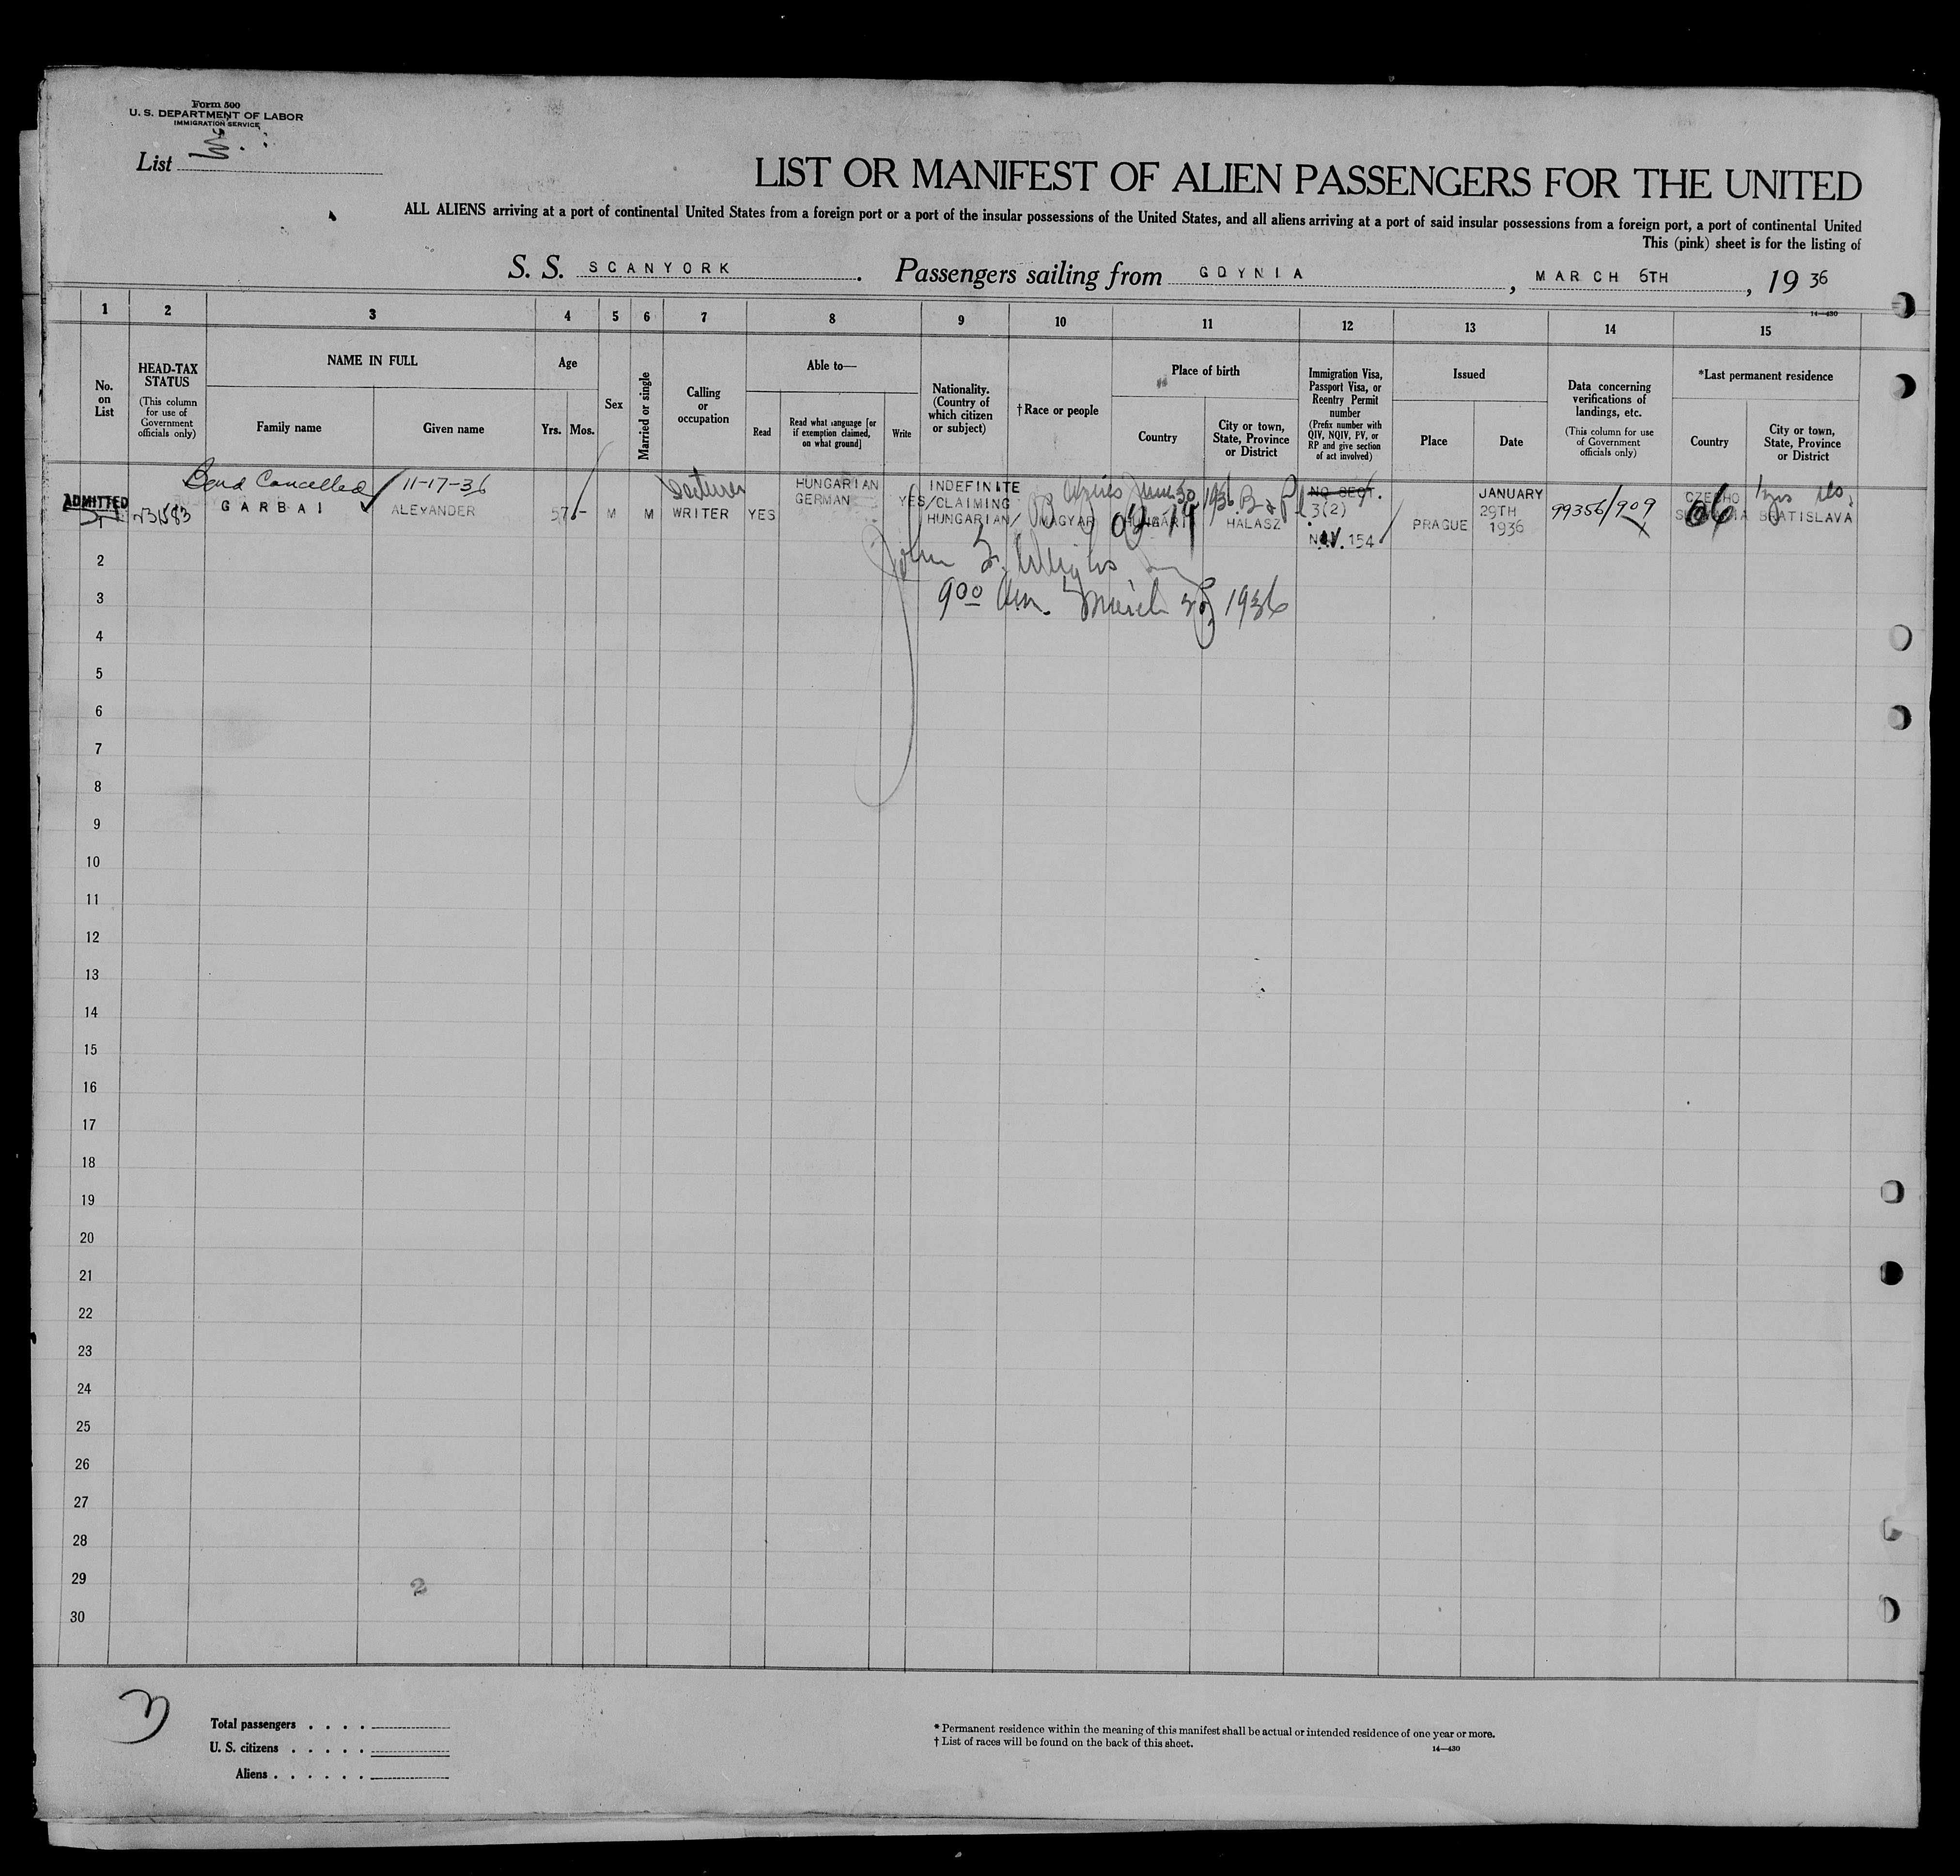 Form 500
U. S. DEPARTMENT OF LABOR
IMMIGRATION SERVICE
List
LIST OR MANIFEST OF ALIEN PASSENGERS FOR THE UNITED
ALL ALIENS arriving at a port of continental United States from a foreign port or a port of the insular possessions of the United States, and all aliens arriving at a port of said insular possessions from a foreign port, a port of continental United
This (pink) sheet is for the listing of
S. S. SCANYORK. Passengers sailing from GDYNIA, MARCH 6TH, 1936
14—430
1 2 3 4 5 6 7 8 9 10 11 12 13 14 15
No. on List
HEAD-TAX STATUS
(This column for use of Government officials only)
NAME IN FULL
Family name
Given name
Age
Yrs.
Mos.
Sex
Married or single
Calling or occupation
Able to—
Read
Read what language [or if exemption claimed, on what ground]
Write
Nationality. (Country of which citizen or subject)
† Race or people
Place of birth
Country
City or town, State, Province or District
Immigration Visa, Passport Visa, or Reentry Permit number
(Prefix number with QIV, NQIV, PV, or RP and give section of act involved)
Issued
Place
Date
Data concerning verifications of landings, etc.
(This column for use of Government officials only)
*Last permanent residence
Country
City or town, State, Province or District
Bond Cancelled 11-17-36
ADMITTED
GARBAI
ALEXANDER
57
M
M
Lecturer
WRITER
YES
HUNGARIAN
GERMAN
YES
INDEFINITE
/CLAIMING
HUNGARIAN/
MAGYAR
HUNGARY
HALASZ
June 30 1936
3(2)
154
PRAGUE
JANUARY
29TH
1936
99356/909
CZECHO
SLOVAKIA
BRATISLAVA
900 am. March 1936
2
3
4
5
6
7
8
9
10
11
12
13
14
15
16
17
18
19
20
21
22
23
24
25
26
27
28
29
2
30
Total passengers . . . .
U. S. citizens . . . . .
Aliens . . . . . .
* Permanent residence within the meaning of this manifest shall be actual or intended residence of one year or more.
† List of races will be found on the back of this sheet.
14—430